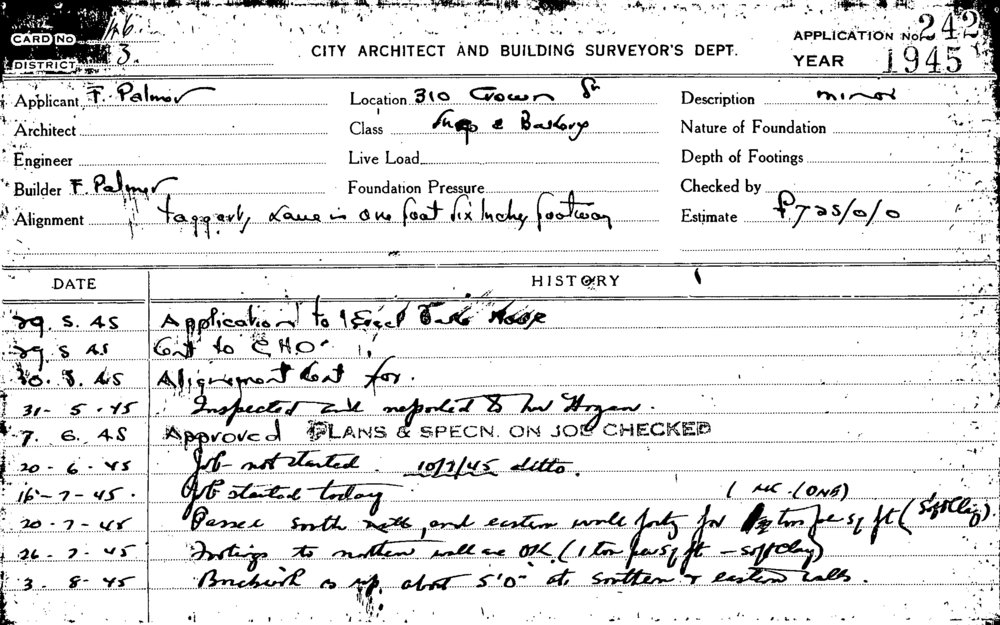 CARD No 146
DISTRICT 3.
CITY ARCHITECT AND BUILDING SURVEYOR'S DEPT.
APPLICATION No. 242
YEAR 1945
Applicant F. Palmer
Location 310 Crown St
Description minor
Architect
Class Shop & Bakery
Nature of Foundation
Engineer
Live Load
Depth of Footings
Builder F. Palmer
Foundation Pressure
Checked by
Alignment Taggarts Lane is one foot six inches footway
Estimate £725/0/0
DATE
HISTORY
29. 5. 45 Application to Erect Bake House
29 5 45 to CHO
30. 5. 45 Alignment for.
31 - 5 - 45 Inspected and reported to Mr Hogan.
7. 6. 45 Approved PLANS & SPECN. ON JOB CHECKED
20 - 6 - 45 Job not started. 10/7/45 ditto.
16 - 7 - 45. Job started today
(ONE)
20 - 7 - 45 south and eastern walls for ton per sq ft (Soft Clay).
26 - 7 - 45 Footings to northern wall are OK. (1 ton per sq ft - soft clay)
3. 8. 45 Brickwork is up about 5'0" at southern & eastern walls.